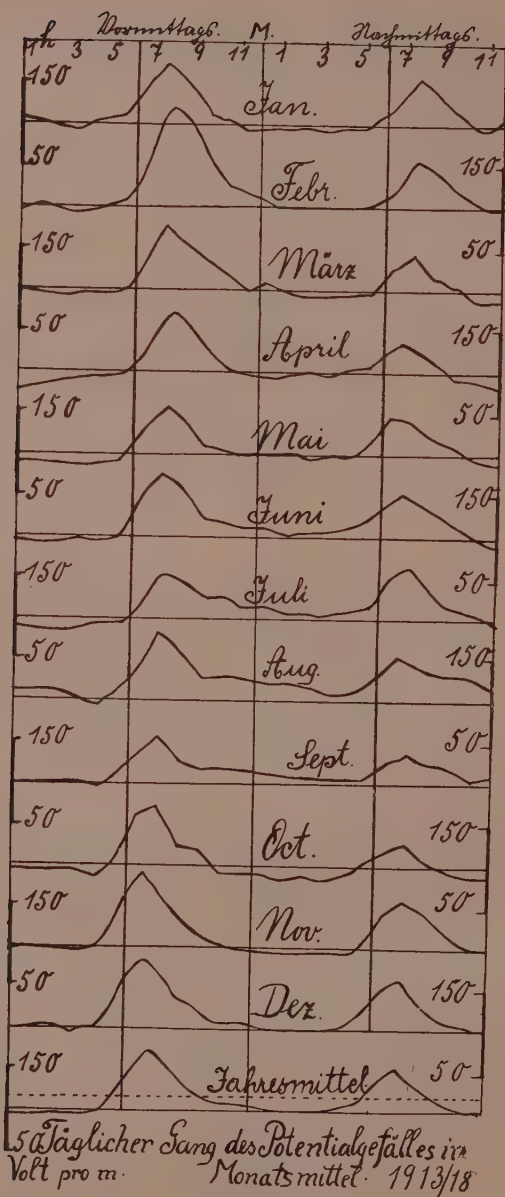 Vormittags. M. Nachmittags.
1h 3 5 7 9 11 1 3 5 7 9 11
150 Jan.
50 Febr. 150
150 März 50
50 April 150
150 Mai 50
50 Juni 150
150 Juli 50
50 Aug. 150
150 Sept. 50
50 Oct. 150
150 Nov. 50
50 Dez. 150
150 Jahresmittel 50
50 Täglicher Gang des Potentialgefälles in
Volt pro m. Monatsmittel. 1913/18